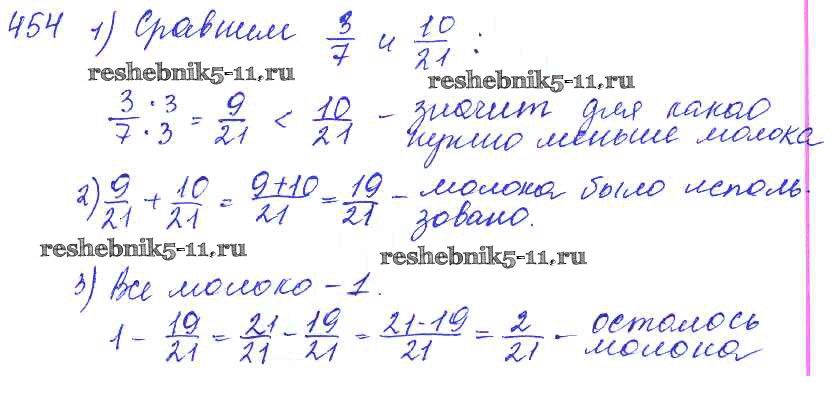 454 1) Сравним 3/7 и 10/21 :
reshebnik5-11.ru reshebnik5-11.ru
3·3/7·3 = 9/21 < 10/21 – значит для какао
нужно меньше молока
2) 9/21 + 10/21 = 9+10/21 = 19/21 – молока было исполь-
зовано.
reshebnik5-11.ru reshebnik5-11.ru
3) Все молоко – 1.
1 – 19/21 = 21/21 – 19/21 = 21-19/21 = 2/21 – осталось
молока